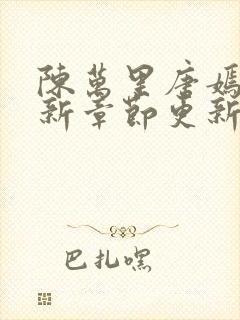 陳萬里唐嫣
新章節更新
巴扎嘿